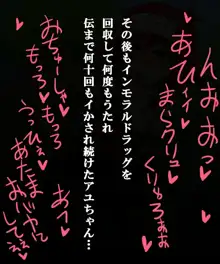 んおおっ♡
あひぃィ♡
まらクリュ♡
くりゅうぁぁ♡
その後もインモラルドラッグを
回収して何度もうたれ
伝まで何十回もイかされ続けたアユちゃん…
おちゅーしゃ♡
もっろ♡もっろ♡
うっひぇ♡
おっ♡
あたま
おバカに
してぇ♡